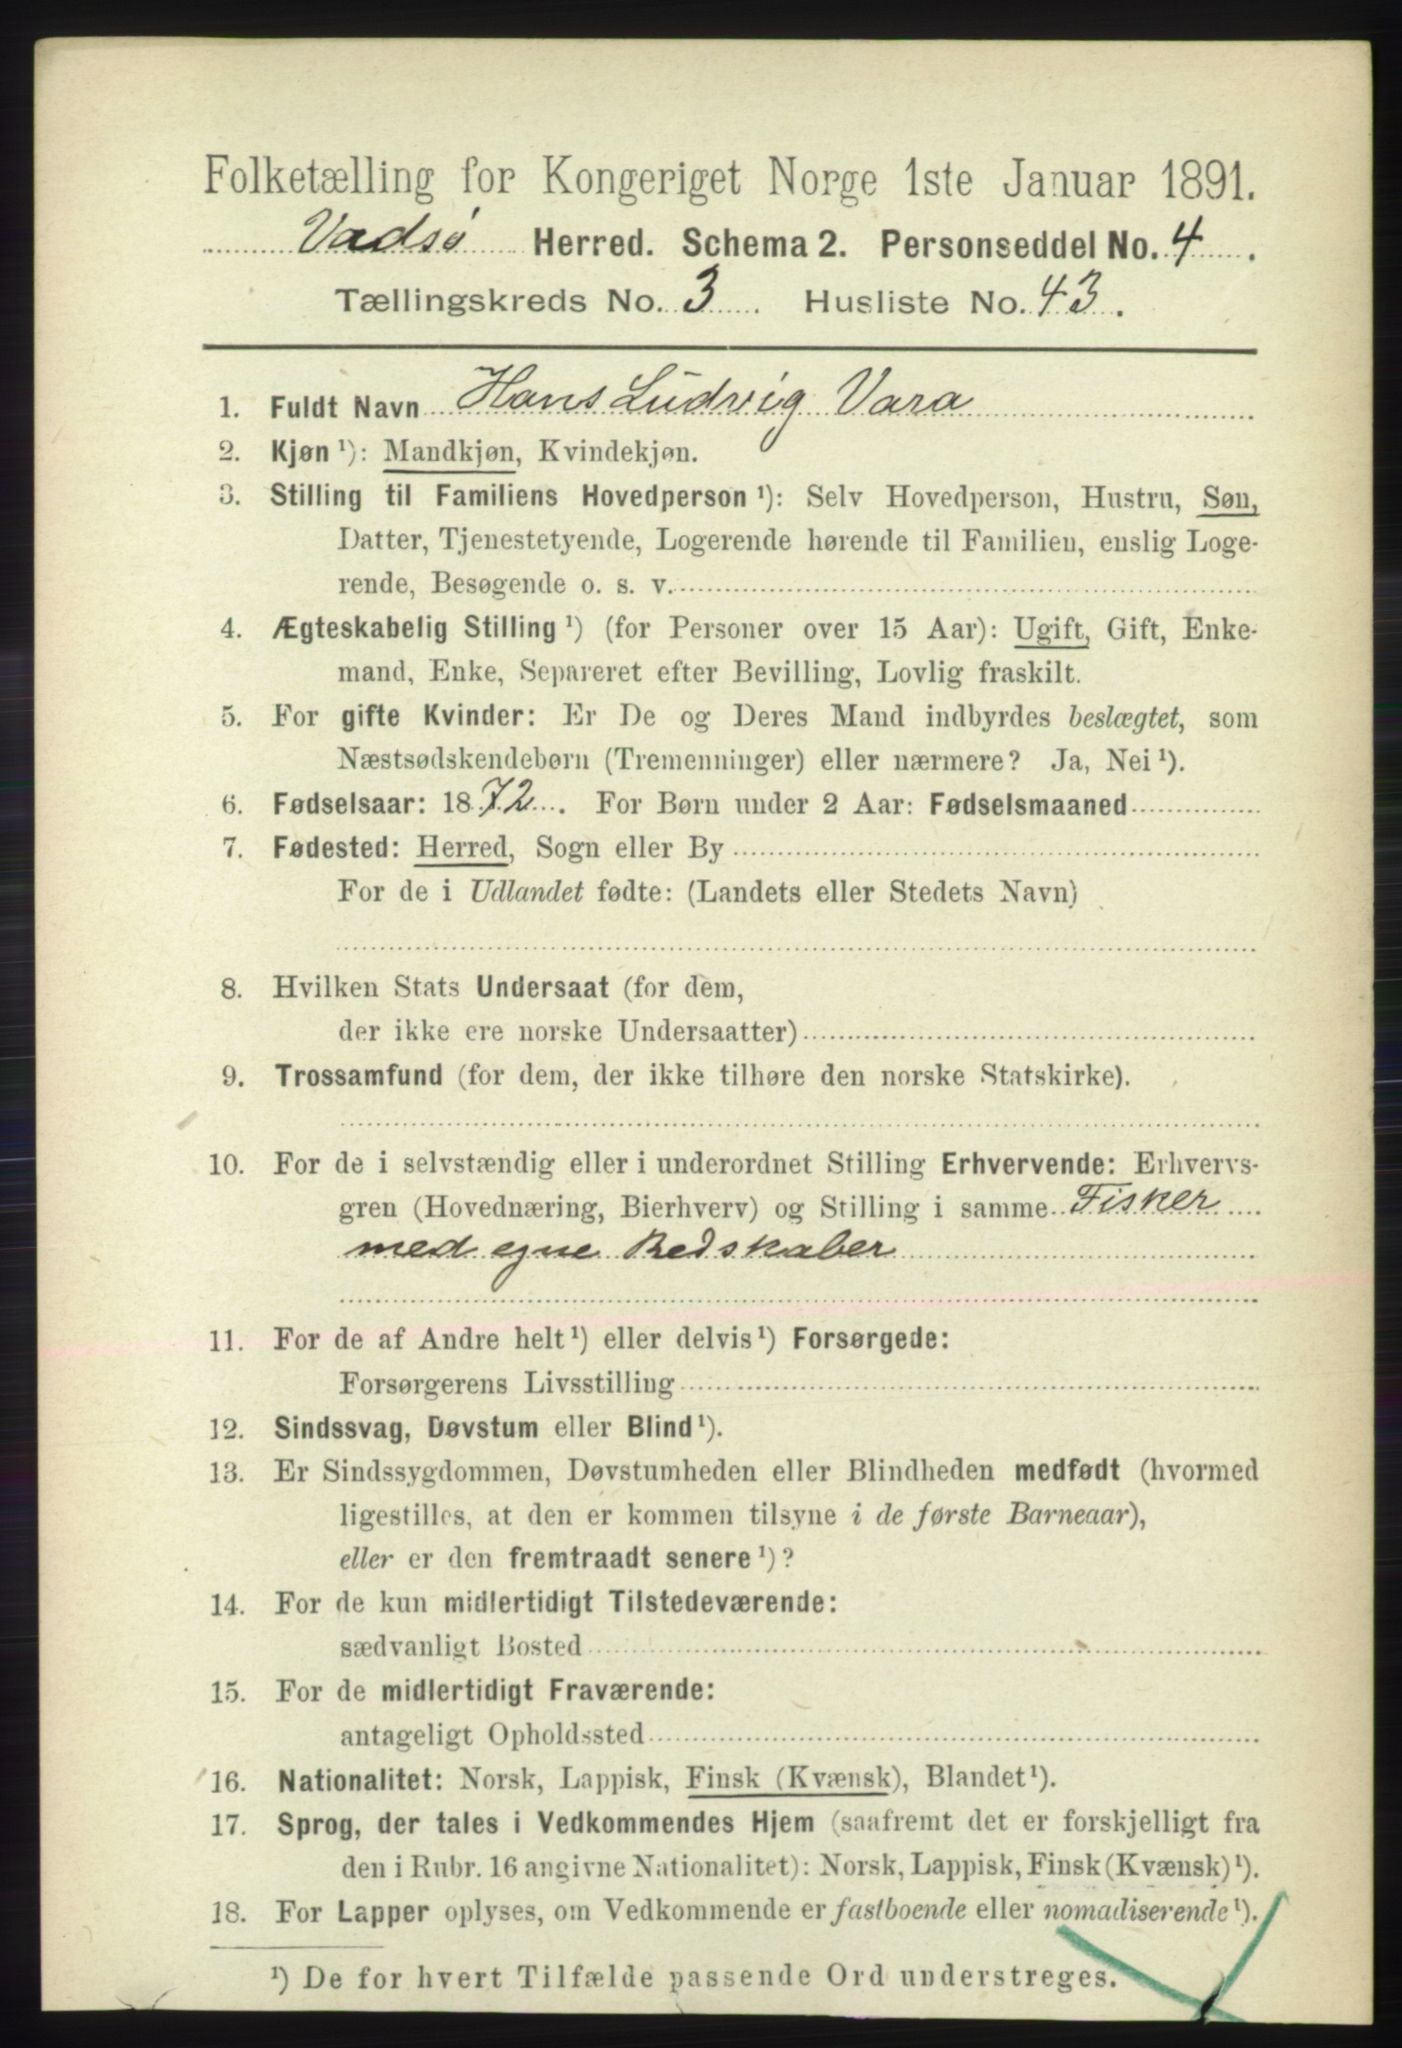 Folketælling for Kongeriget Norge 1ste Januar 1891.
Vadsø Herred. Schema 2. Personseddel No. 4.
Tællingskreds No. 3. Husliste No. 43.
1. Fuldt Navn Hans Ludvig Vara
2. Kjøn ¹): Mandkjøn, Kvindekjøn.
3. Stilling til Familiens Hovedperson ¹): Selv Hovedperson, Hustru, Søn,
Datter, Tjenestetyende, Logerende hørende til Familien, enslig Loge-
rende, Besøgende o. s. v.
4. Ægteskabelig Stilling ¹) (for Personer over 15 Aar): Ugift, Gift, Enke-
mand, Enke, Separeret efter Bevilling, Lovlig fraskilt.
5. For gifte Kvinder: Er De og Deres Mand indbyrdes beslægtet, som
Næstsødskendebørn (Tremenninger) eller nærmere? Ja, Nei ¹).
6. Fødselsaar: 1872. For Børn under 2 Aar: Fødselsmaaned
7. Fødested: Herred, Sogn eller By
For de i Udlandet fødte: (Landets eller Stedets Navn)
8. Hvilken Stats Undersaat (for dem,
der ikke ere norske Undersaatter)
9. Trossamfund (for dem, der ikke tilhøre den norske Statskirke).
10. For de i selvstændig eller i underordnet Stilling Erhvervende: Erhvervs-
gren (Hovednæring, Bierhverv) og Stilling i samme Fisker
med egne Redskaber
11. For de af Andre helt ¹) eller delvis ¹) Forsørgede:
Forsørgerens Livsstilling
12. Sindssvag, Døvstum eller Blind ¹).
13. Er Sindssygdommen, Døvstumheden eller Blindheden medfødt (hvormed
ligestilles, at den er kommen tilsyne i de første Barneaar),
eller er den fremtraadt senere ¹)?
14. For de kun midlertidigt Tilstedeværende:
sædvanligt Bosted
15. For de midlertidigt Fraværende:
antageligt Opholdssted
16. Nationalitet: Norsk, Lappisk, Finsk (Kvænsk), Blandet ¹).
17. Sprog, der tales i Vedkommendes Hjem (saafremt det er forskjelligt fra
den i Rubr. 16 angivne Nationalitet): Norsk, Lappisk, Finsk (Kvænsk) ¹).
18. For Lapper oplyses, om Vedkommende er fastboende eller nomadiserende ¹).
¹) De for hvert Tilfælde passende Ord understreges.